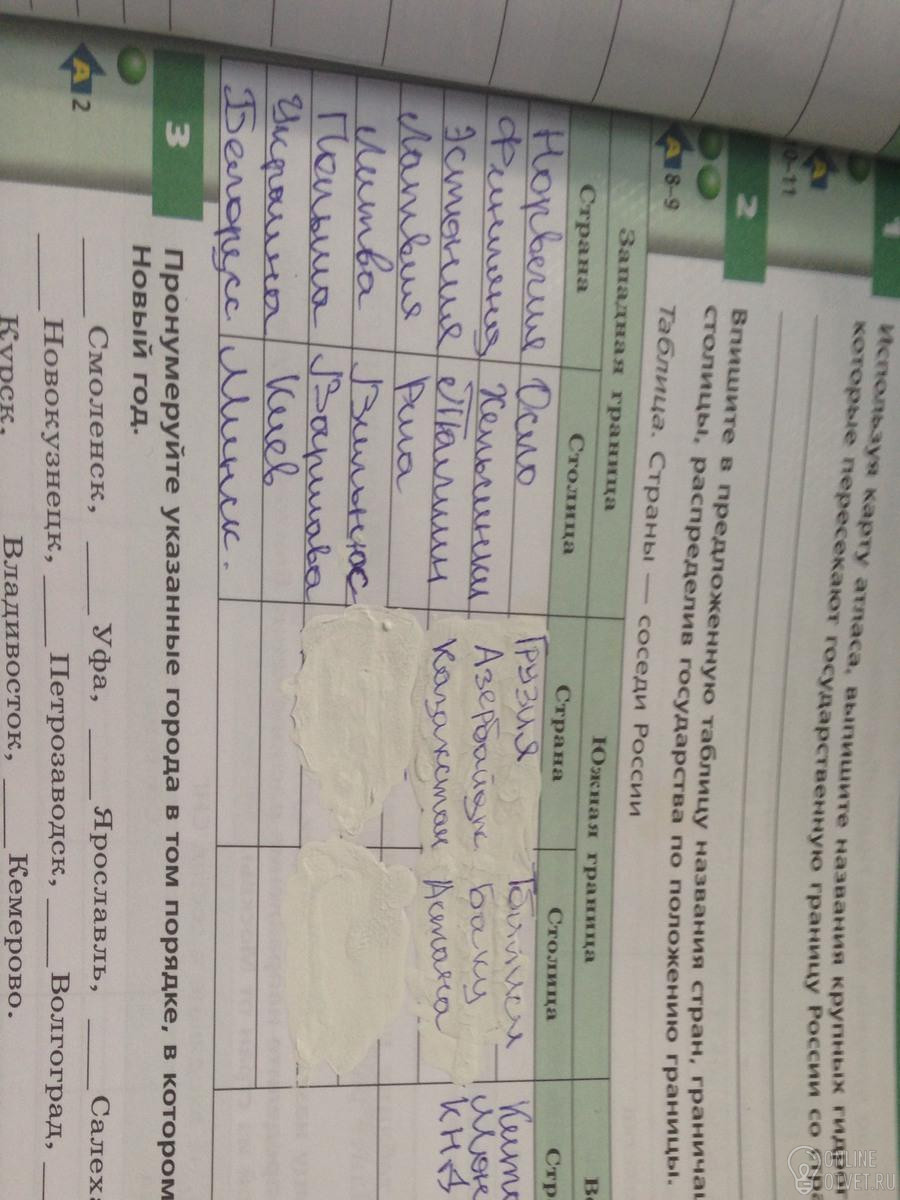 Используя карту атласа, выпишите названия крупных
которые пересекают государственную границу России со
10–11
2
Впишите в предложенную таблицу названия стран,
столицы, распределив государства по положению границы.
А 8–9
Таблица. Страны — соседи России
Западная граница Южная граница
Страна Столица Страна Столица
Норвегия Осло Грузия Тбилиси
Финлянд Хельшинки Азербайдж Баку
Эстония Таллинн Казахстан Астана КНД
Латвия Рига
Литва Вильнюс
Польша Варшава
Украина Киев
Белорусс Минск.
3
Пронумеруйте указанные города в том порядке, в котором
Новый год.
А 2
Смоленск, Уфа, Ярославль,
Новокузнецк, Петрозаводск, Волгоград,
Курск, Владивосток, Кемерово.
ONLINE
OTVET.RU